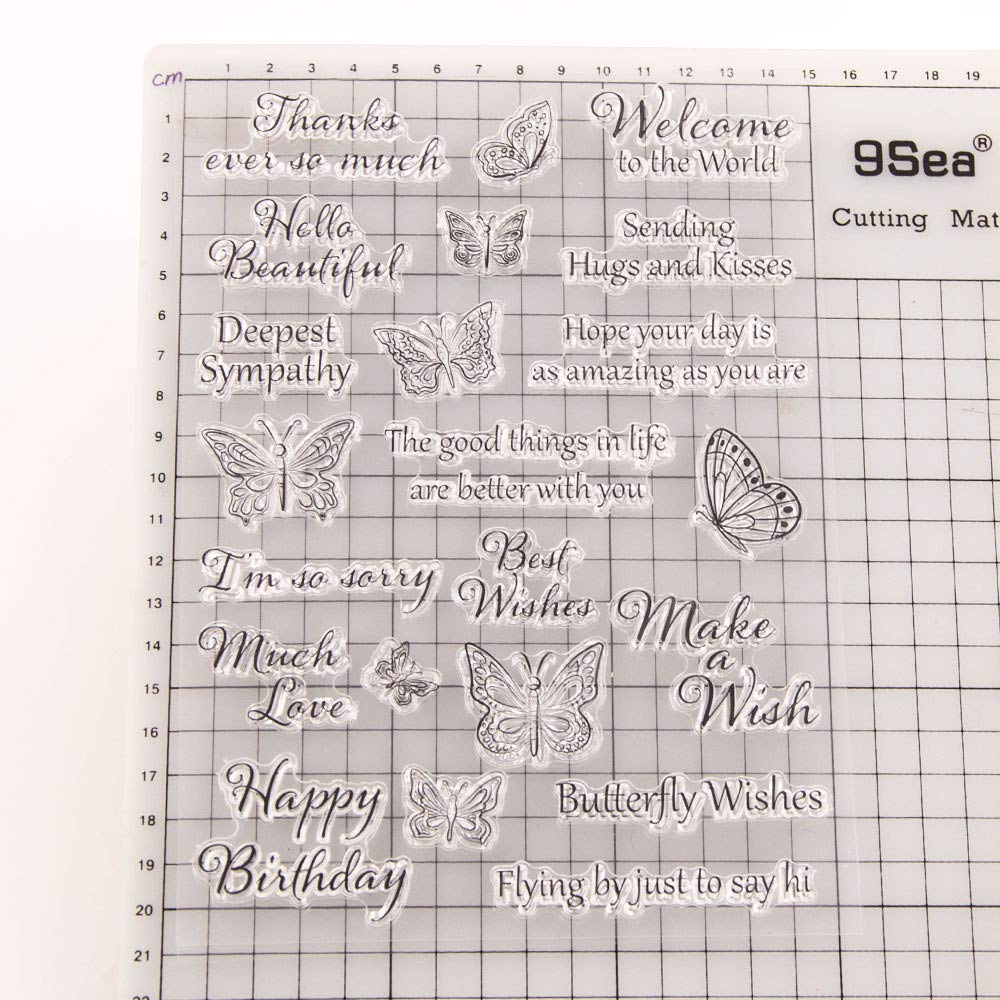 cm
1 2 3 4 5 6 7 8 9 10 11 12 13 14 15 16 17 18 19
1
2
3
4
5
6
7
8
9
10
11
12
13
14
15
16
17
18
19
20
21
9Sea®
Cutting Mat
Thanks
ever so much
Welcome
to the World
Hello
Beautiful
Sending
Hugs and Kisses
Deepest
Sympathy
Hope your day is
as amazing as you are
The good things in life
are better with you
I'm so sorry
Best
Wishes
Make
a
Wish
Much
Love
Happy
Birthday
Butterfly Wishes
Flying by just to say hi